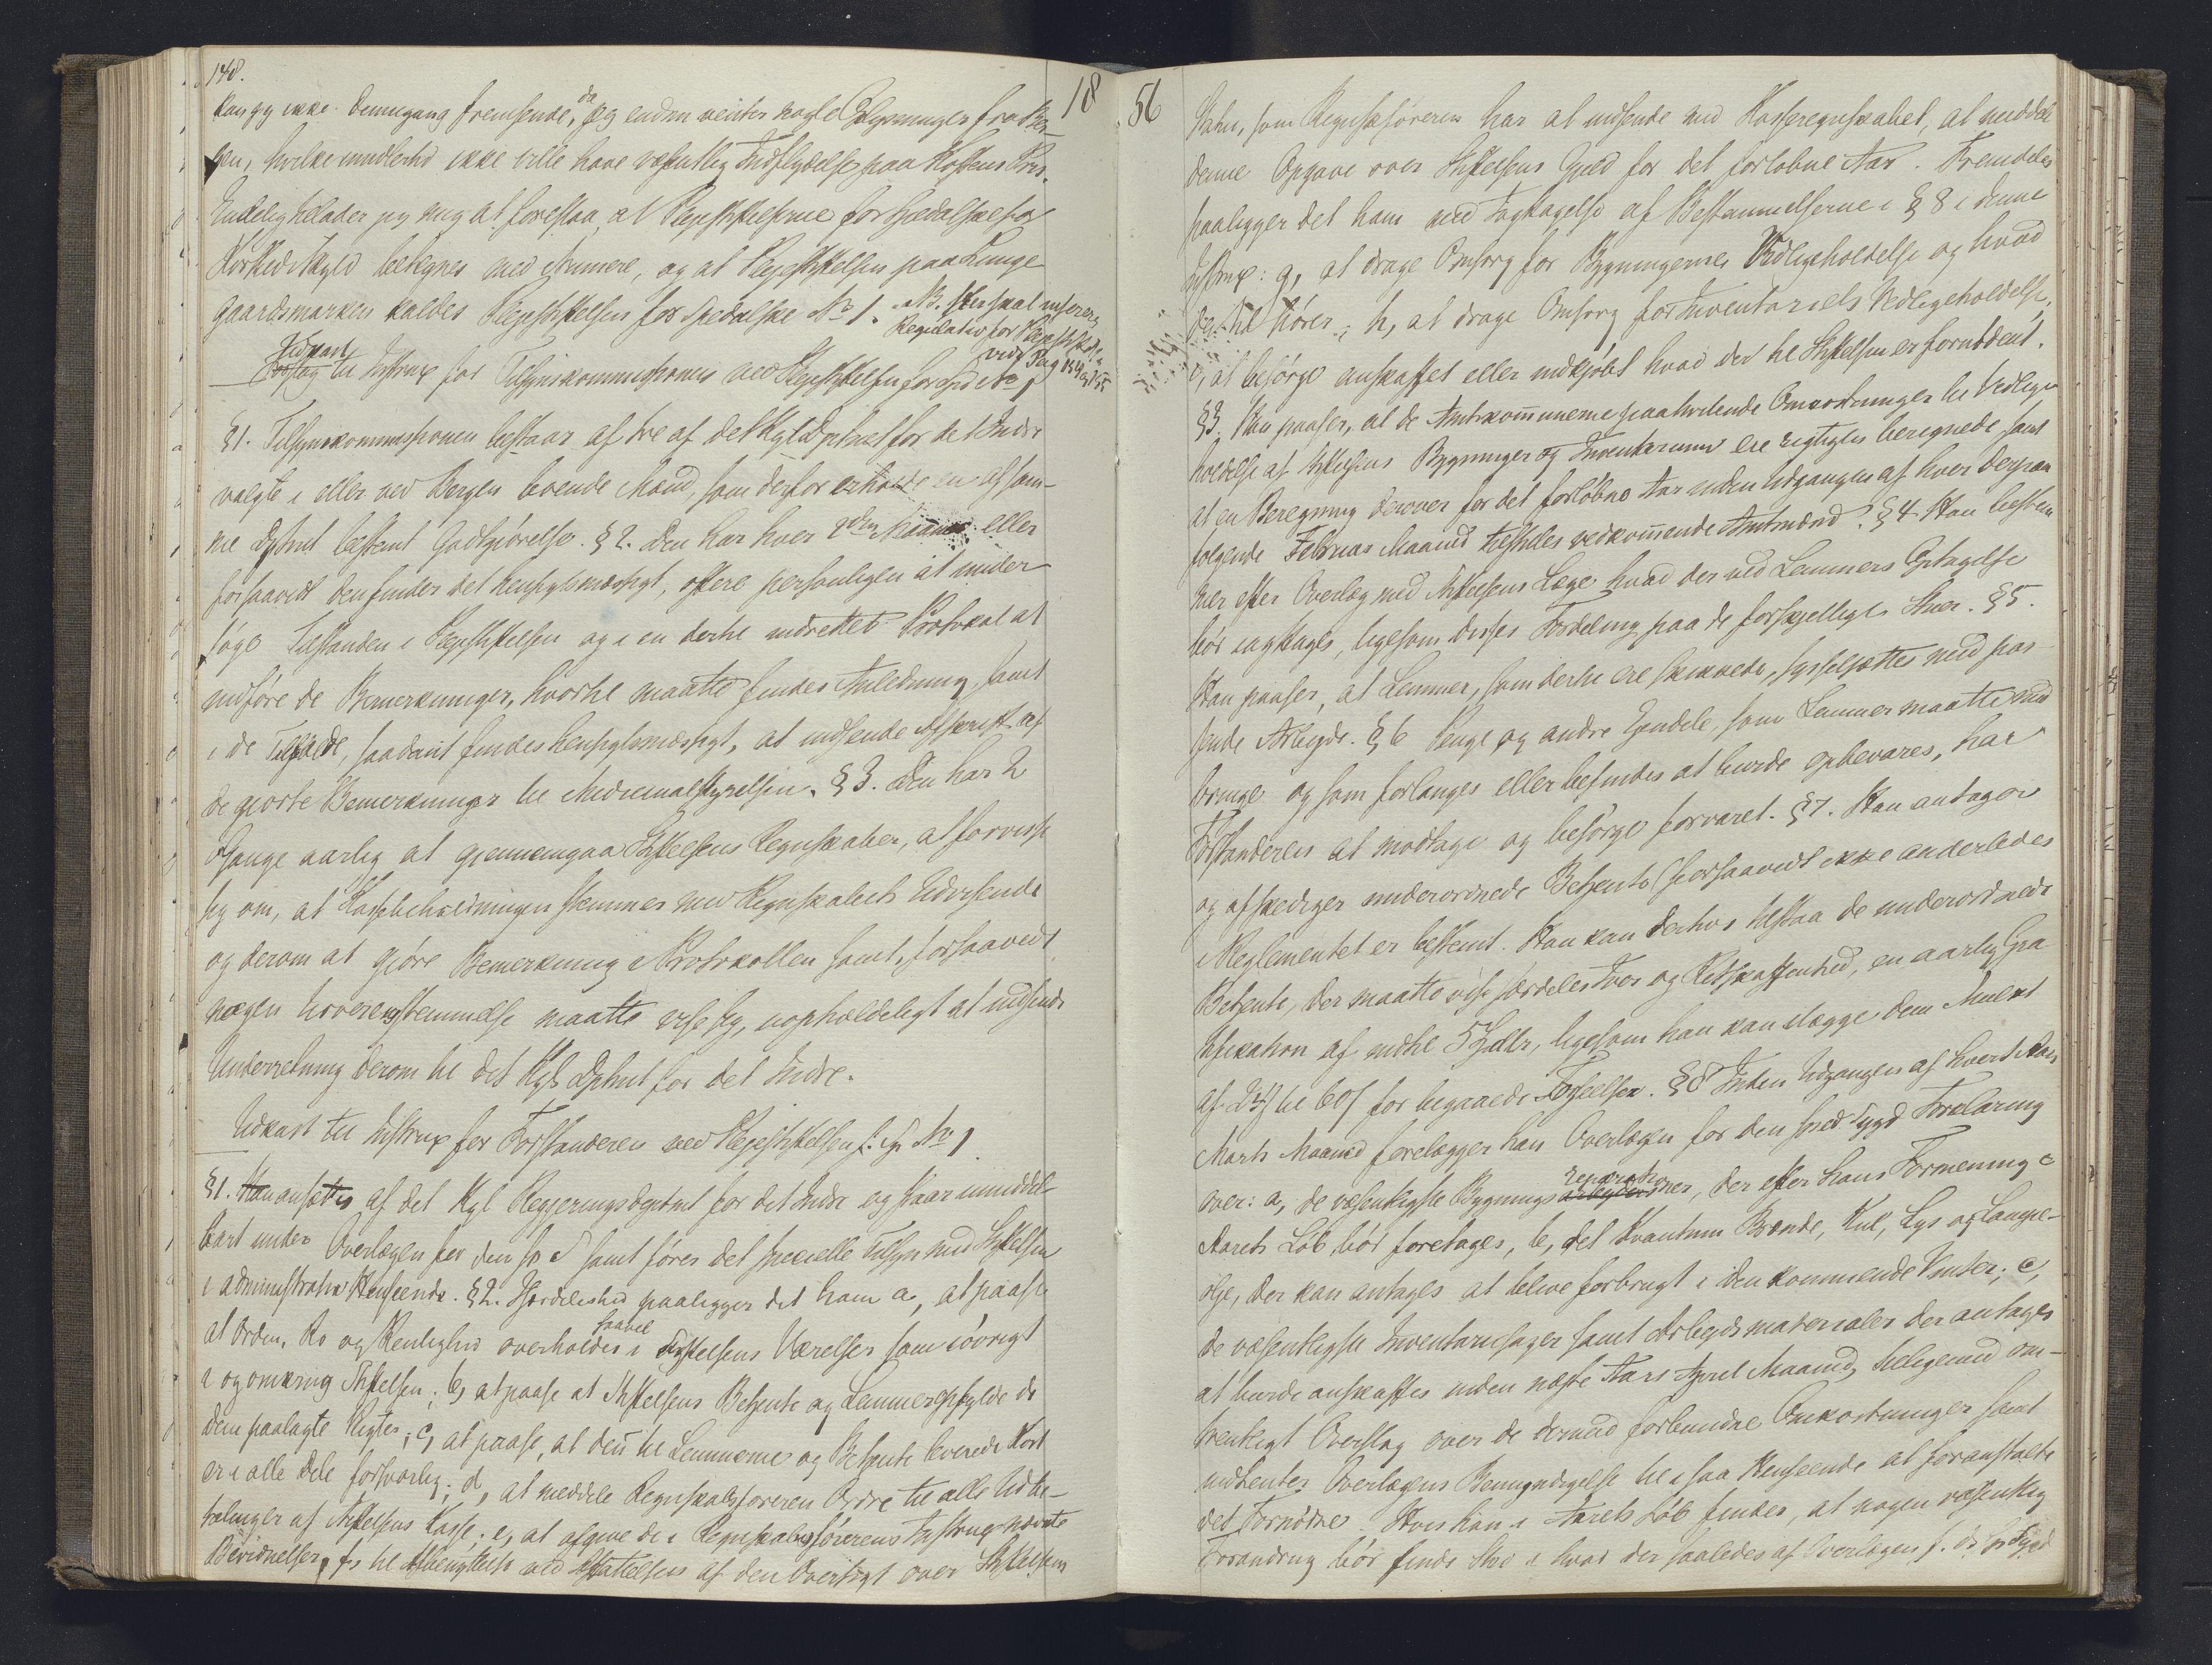 148.
18
kan jeg ikke denne gang fremsende, da jeg endnu venter nogle Oplysninger fra Ber-
gen, hvilke imidlertid ikke ville have væsentlig Indflydelse paa Kostens Pris.
Endelig tillader jeg mig at foreslaa, at Plejestiftelserne for Spedalske
betegnes med Numere, og at Plejestiftelsen paa Lunge-
gaardsmarken kaldes Plejestiftelsen for Spedalske No 1. NB. Her skal indføres
Regulativ for Plejestift.
vide Pag 154 og 155
Udkast
Forslag til Instrux for Tilsynskommissionen ved Plejestiftelsen for Sp. No 1
§1. Tilsynskommissionen bestaar af tre af det Kgl Dptmt for det Indre
valgte i eller ved Bergen boende Mænd, som derfor erholde en af sam-
me Dptmt bestemt Godtgjörelse. §2. Den har hver 2den Maaned eller
forsaavidt den finder det hensigtsmæssigt, oftere personligen at under-
söge Tilstanden i Plejestiftelsen og i en dertil indrettet Protokol at
indföre de Bemerkninger, hvortil maatte findes Anledning samt
i de Tilfælde, saadant findes hensigtsmæssigt, at indsende Afskrift af
de gjorte Bemerkninger til Medicinalstyrelsen. §3. Den har 2
Gange aarlig at gjennemgaa Stiftelsens Regnskaber, at forvisse
sig om, at Kassebeholdningen stemmer med Regnskabets Udvisende
og derom at gjöre Bemerkning i Protokollen samt, forsaavidt
nogen Uoverensstemmelse maatte vise sig, uopholdeligt at indsende
Underretning derom til det Kgl Dptmt for det Indre.
Udkast til Instrux for Forstanderen ved Plejestiftelsen f. Sp. No 1
§1. Han ansættes af det Kgl Regjeringsdeptmt for det Indre og staar umiddel-
bart under Overlægen for den sp S samt förer det specielle Tilsyn med Stiftelsen
i administrativ Henseende. §2. Særdeleshed paaligger det ham a, at paase
at Orden, Ro og Renlighed overholdes saavel i Stiftelsens Værelser som iövrigt
i og omkring Stiftelsen; b, at paase at Stiftelsens Betjente og Lemmer opfylde de
dem paalagte Pligter; c, at paase, at den til Lemmerne og Betjente leverede Kost
er i alle Dele forsvarlig; d, at meddele Regnskabsföreren Ordre til alle Udbe-
talinger af Stiftelsens Kasse; e, at afgive de i Regnskabsförerens Instrux nævnte
Bevidnelser, f, til Afbenyttelse ved Affattelsen af den Oversigt over Stiftelsens
56
som Regnskabsföreren har at indsende med Kasseregnskabet, at meddele
denne Opgave over Stiftelsens Gjeld for det forløbne Aar. Fremdeles
paaligger det ham med Iagttagelse af Bestemmelserne i §8 i denne
Instrux: g, at drage Omsorg for Bygningernes Vedligeholdelse og hvad
dertil hörer; h, at drage Omsorg for Inventariets Vedligeholdelse,
i, at besörge anskaffet eller indkjöbt hvad der til Stiftelsen er fornödent.
§3. Han paaser, at de Amtskommunerne paahvilende Omkostninger til Vedlige-
holdelse af Stiftelsens Bygninger og Inventarium ere rigtigen beregnede samt
at en Beregning derover for det forløbne Aar inden Udgangen af hver derpaa
fölgende Februar Maaned tilstilles vedkommende Amtmænd. §4. Han bestem-
mer efter Overlæg med Stiftelsens Læge hvad der ved Lemmers Optagelse
bör iagttages, ligesom disses Fordeling paa de forskjellige Stuer. §5.
Han paaser, at Lemmer, som dertil ere skikkede, sysselsættes med pas-
sende Arbejde. §6 Penge og andre Ejendele, som Lemmer maatte med-
bringe og som forlanges eller befindes at burde opbevares, har
Forstanderen at modtage og besörge forvaret. §7. Han antager
og afskediger underordnede Betjente (forsaavidt ikke anderledes
i Reglementet er bestemt. Han kan derhos tilstaa de underordnede
Betjente, der maatte vise særdeles Iver og Retskaffenhed, en aarlig Gra-
tifikation af indtil 5 Spdlr, ligesom han kan ilægge dem Mulkt
af 24 ß til 60 ß for begaaede Forseelser. §8 Inden Udgangen af hvert Aars
Marts Maaned forelægger han Overlægen for den sped Sygd Forklaring
over: a, de væsentligste Bygningsarbejder reparationer, der efter hans Formening i
Aarets Löb bör foretages, b, det Kvantum Brænde, Kul, Lys og Lampe-
olje, der kan antages at blive forbrugt i den kommende Vinter; c,
de væsentligste Inventariesager samt Arbejdsmaterialer der antages
at burde anskaffes inden næste Aars April Maaned, tilligemed om-
trentligt Overslag over de dermed forbundne Omkostninger samt
indhenter Overlægens Bemyndigelse til i saa Henseende at foranstalte
det Fornödne. Hvis han i Aarets Löb finder, at nogen væsentlig
Forandring bör finde Sted i hvad der saaledes af Overlægen f. d. sp Sygd